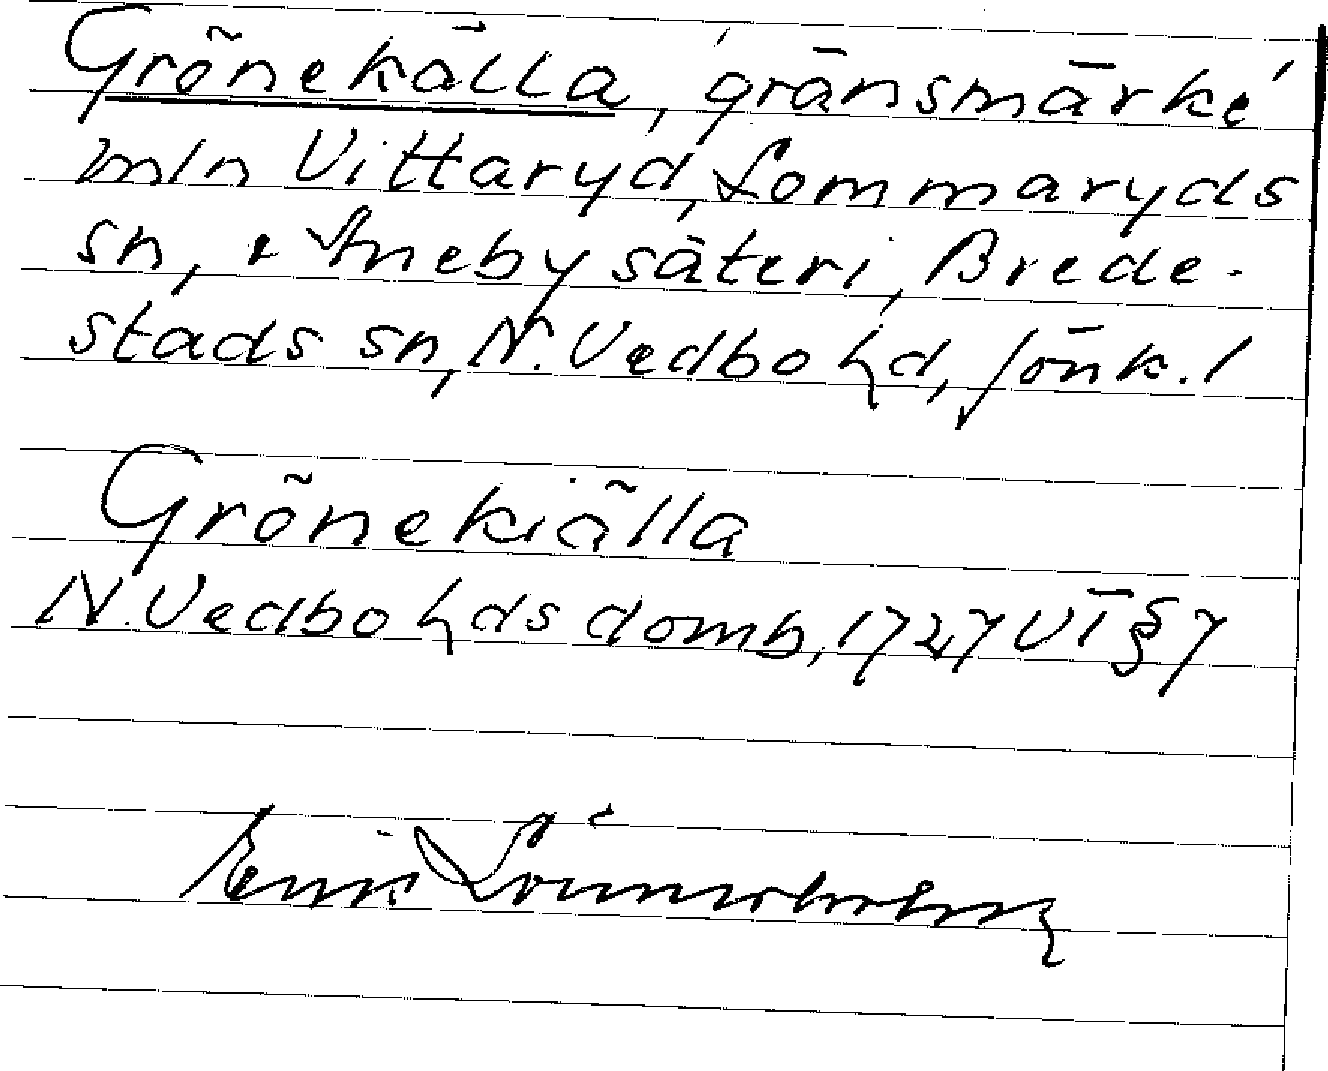 Grönekälla, gränsmärke
mln Vittaryd, Lommaryds
sn, & Aneby säteri, Brede-
stads sn, N. Vedbo hd, Jönk. l
Grönekiälla
N. Vedbo hds domb, 1727 VI § 7